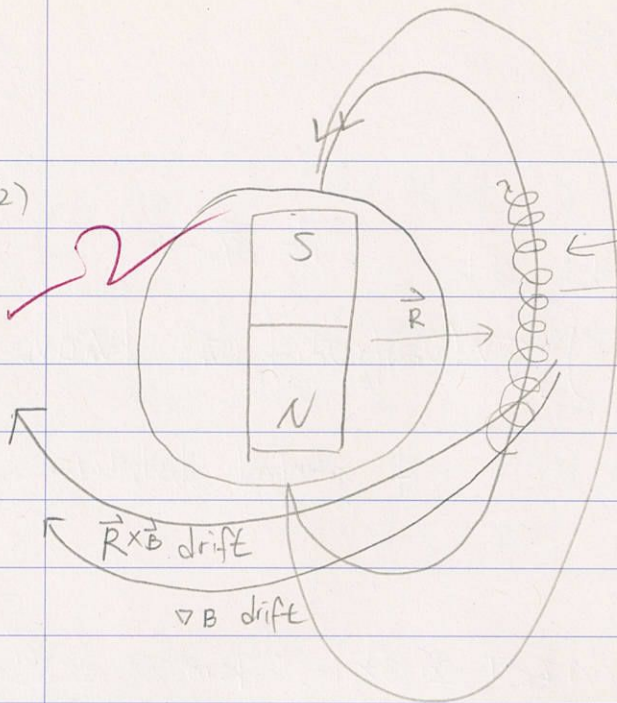 2)
S
R⃗
N
R⃗×B⃗ drift
▽B drift